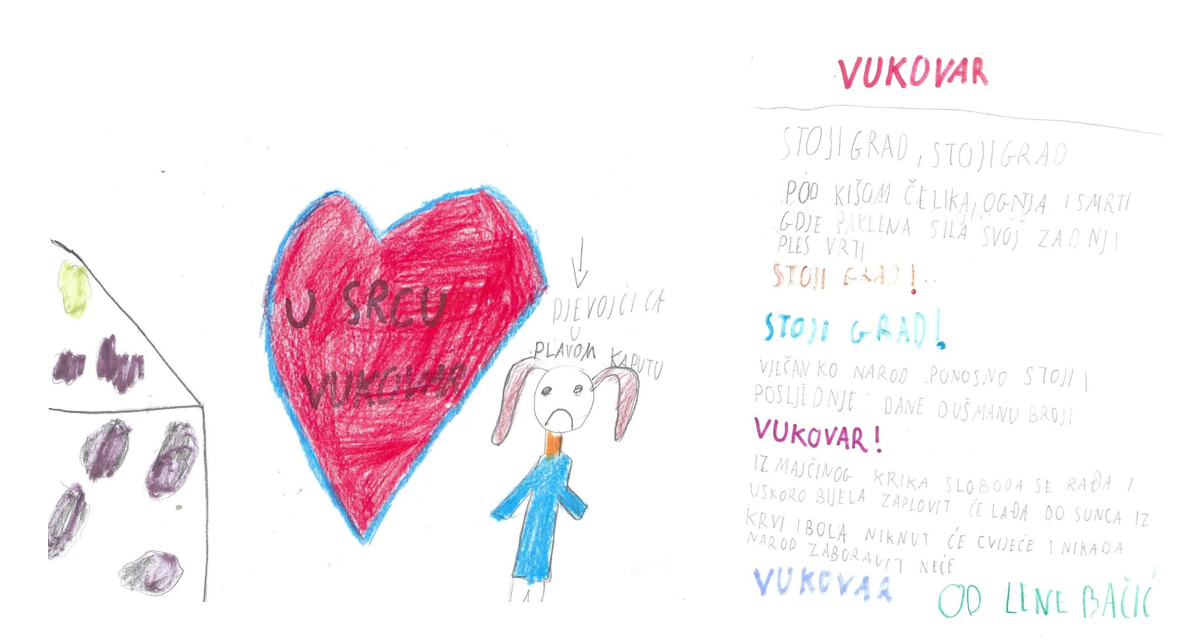 U SRCU
VUKOVAR
DJEVOJČICA
U
PLAVOM KAPUTU
VUKOVAR
STOJI GRAD, STOJI GRAD
POD KIŠOM ČELIKA, OGNJA I SMRTI
GDJE PAKLENA SILA SVOJ ZADNJI
PLES VRTI
STOJI GRAD!..
STOJI GRAD!
VJEČAN KO NAROD PONOSNO STOJI I
POSLJEDNJE DANE DUŠMANU BROJI
VUKOVAR!
IZ MAJČINOG KRIKA SLOBODA SE RAĐA I
USKORO BIJELA ZAPLOVIT ĆE LAĐA DO SUNCA IZ
KRVI I BOLA NIKNUT ĆE CVIJEĆE I NIKADA
NAROD ZABORAVIT NEĆE
VUKOVAR
OD LENE BAČIĆ